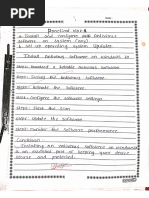 Practical No:- 6
* Install and configure antivirus
software on system (any)
* set up operating system Updates
Install antivirus software on windows 10
Step1: Download a suitable antivirus software.
Step2: Install the antivirus software.
Step3: Activate the software.
Step4: Configure the software settings
Step5: Start the scan
Step6: Update the software
Step7: Monitor the software performance
Conclusion
- Installing an antivirus software on windows 10
is an essential part of keeping your device
secure and protected.